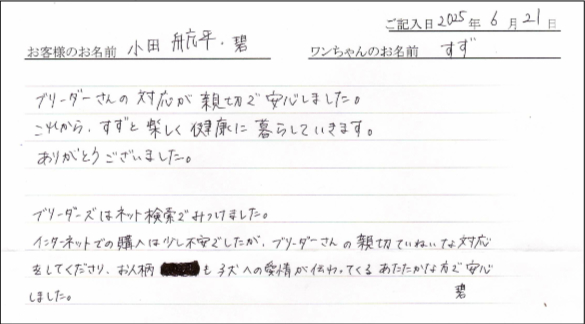 ご記入日 2025年 6月 21日
お客様のお名前 小田 航平・碧 ワンちゃんのお名前 すず
ブリーダーさんの対応が親切で安心しました。
これから、すずと楽しく健康に暮らしていきます。
ありがとうございました。
ブリーダーズはネット検索でみつけました。
インターネットでの購入は少し不安でしたが、ブリーダーさんの親切ていねいな対応
をしてくださり、お人柄も子犬への愛情が伝わってくるあたたかな方で安心
しました。 碧